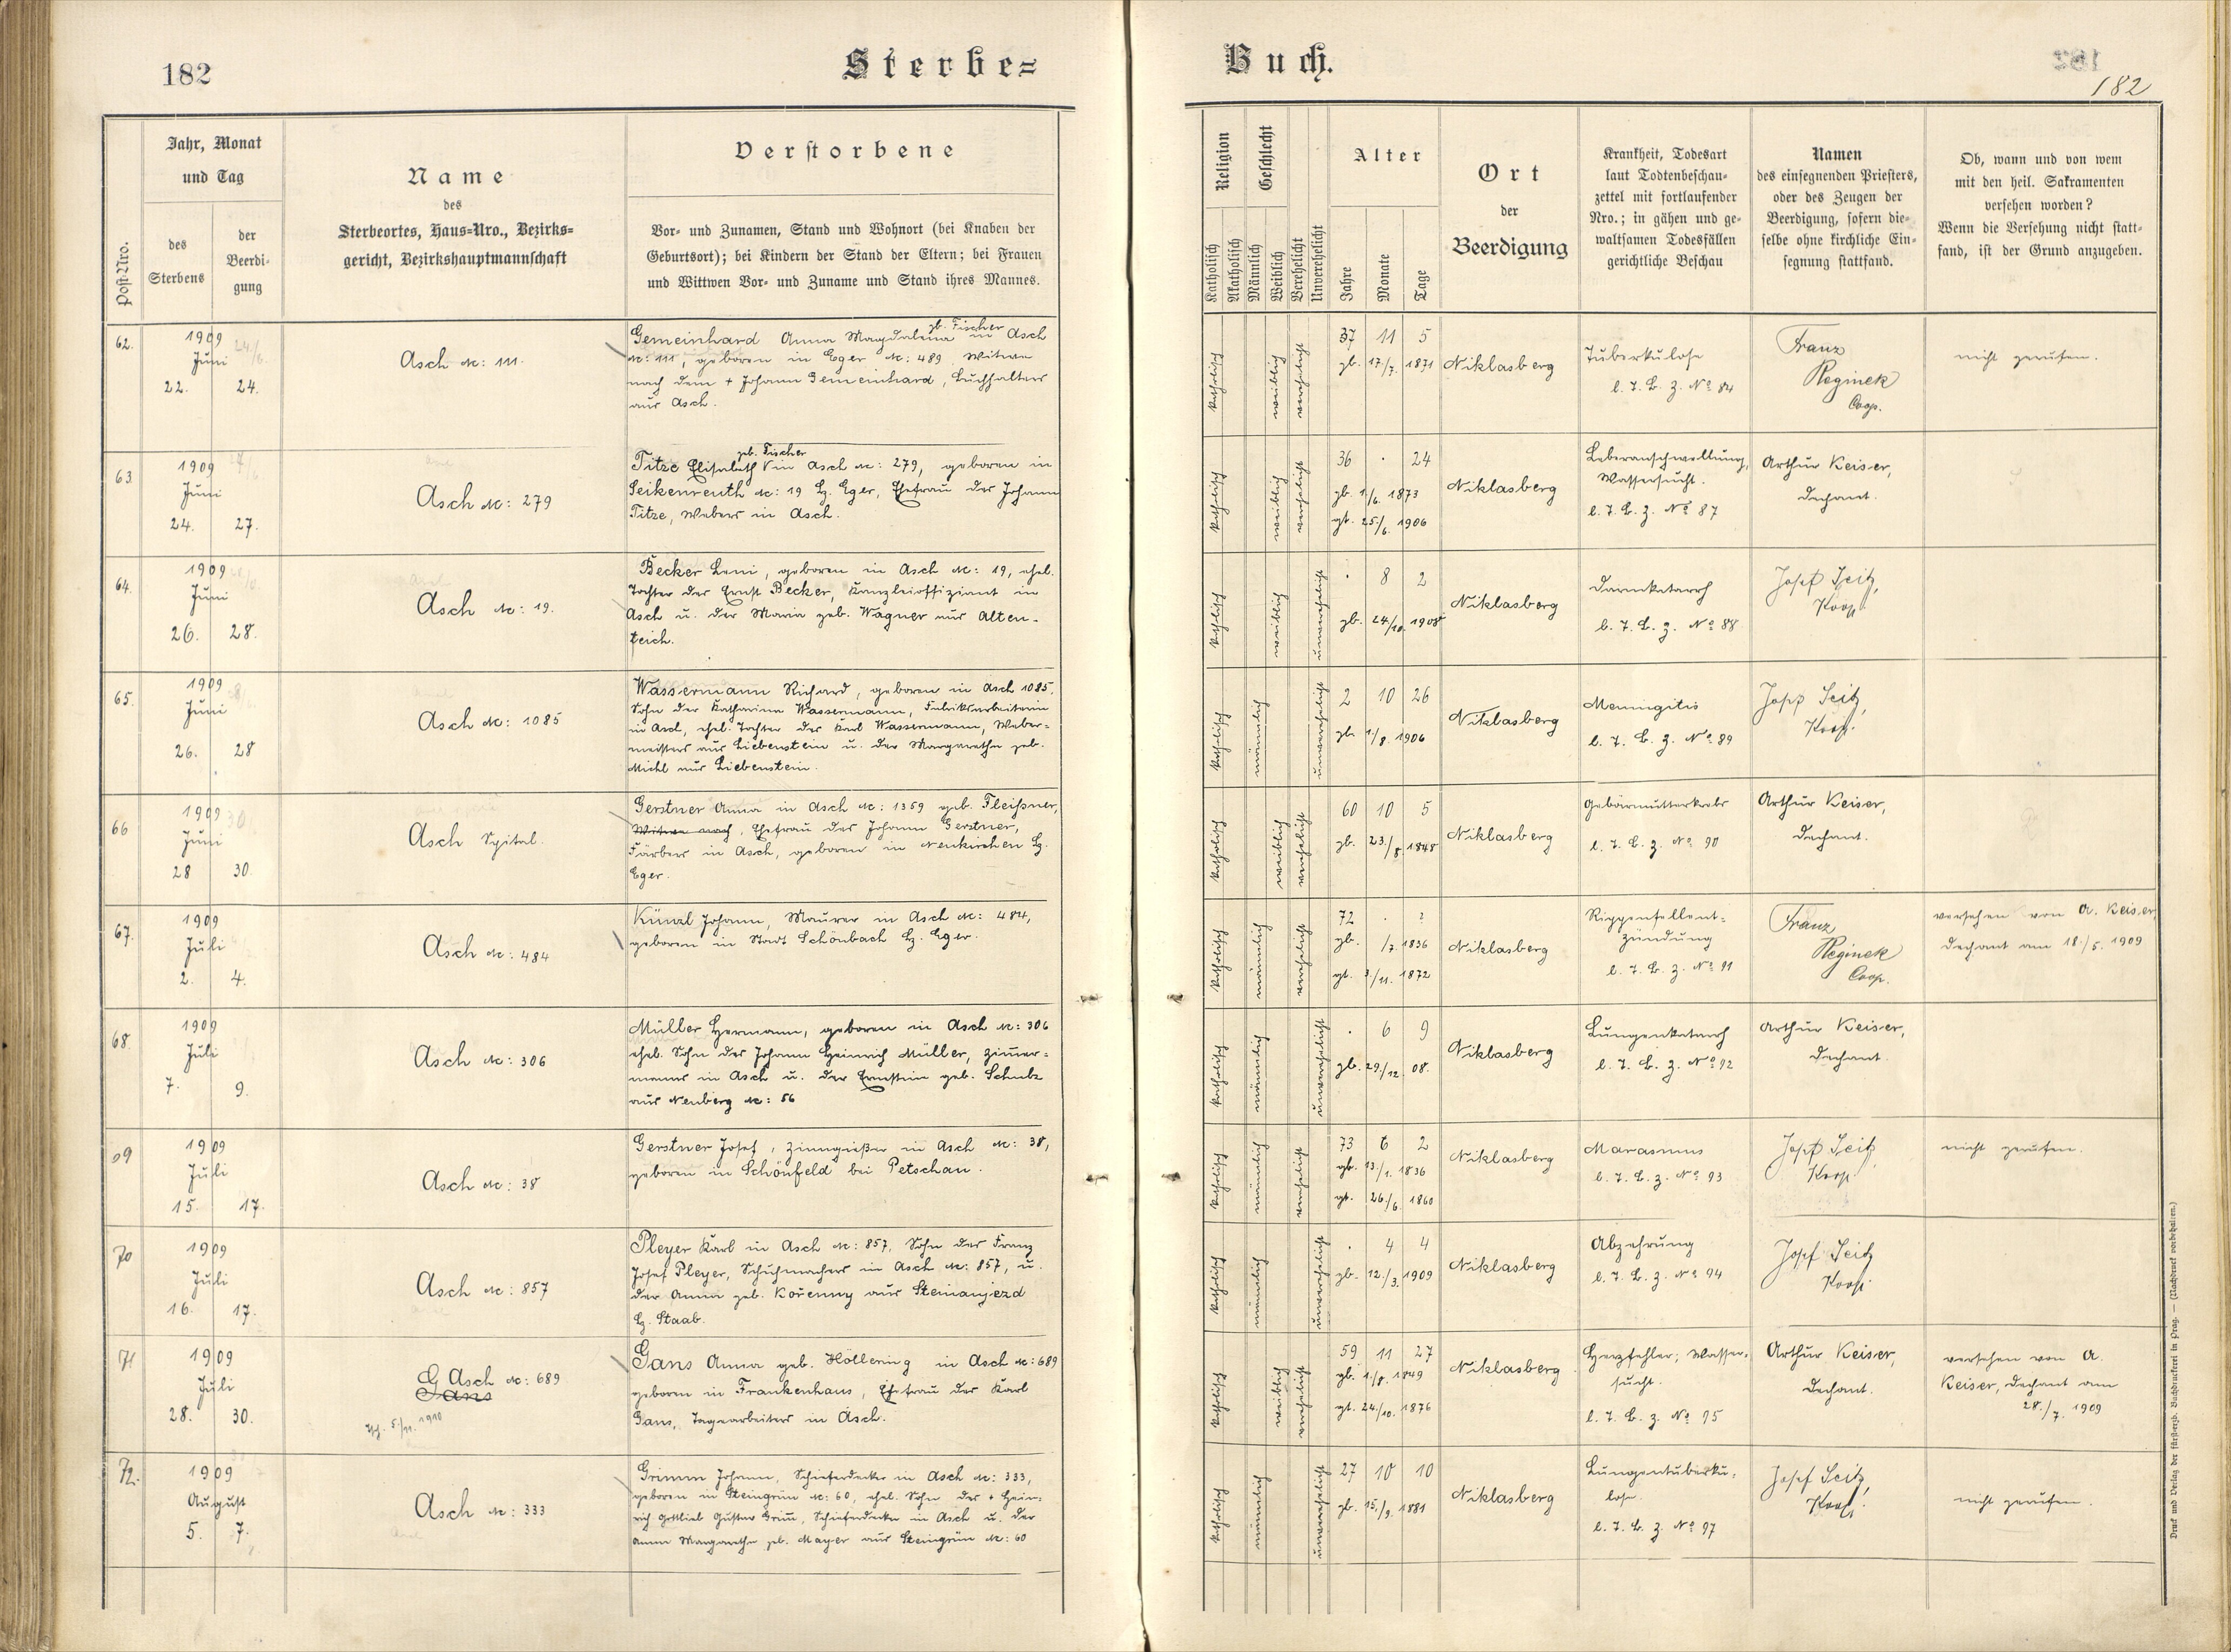 182
Sterbe=
Jahr, Monat
und Tag
Post-Nro.
des
Sterbens
der
Beerdi-
gung
Name
des
Sterbeortes, Haus-Nro., Bezirks-
gericht, Bezirkshauptmannschaft
Verstorbene
Vor- und Zunamen, Stand und Wohnort (bei Knaben der
Geburtsort); bei Kindern der Stand der Eltern; bei Frauen
und Wittwen Vor- und Zuname und Stand ihres Mannes.
62.
1909
Juni
22. 24.
Asch №: 111.
gb. Fischer
Gemeinhard Anna Magdalena in Asch
№: 111, geboren in Eger №: 489, Witwe
nach dem + Johann Gemeinhard, Buchhalters
aus Asch.
63.
1909
Juni
24. 27.
Asch №: 279
geb. Fischer
Titze Elisabeth in Asch №: 279, geboren in
Seikenreuth №: 19 Bz. Eger, Ehefrau des Johann
Titze, Webers in Asch.
64.
1909
Juni
26. 28.
Asch №: 19.
Becker Leni, geboren in Asch №: 19, ehel.
Tochter des Ernst Becker, Kanzleioffiziant in
Asch u. der Maria geb. Wagner aus Alten-
teich.
65.
1909
Juni
26. 28
Asch №: 1085
Wassermann Richard, geboren in Asch 1085,
Sohn der Katharina Wassermann, Fabriksarbeiterin
in Asch, ehel. Tochter des Karl Wassermann, Weber=
meisters aus Liebenstein u. der Margarethe geb.
Michl aus Liebenstein.
66
1909
Juni
28 30.
Asch Spital.
Gerstner Anna in Asch №: 1359 geb. Fleißner,
Witwe nach, Ehefrau des Johann Gerstner,
Färbers in Asch, geboren in Neukirchen Bz.
Eger.
67.
1909
Juli
2. 4.
Asch №: 484
Künzl Johann, Maurer in Asch №: 484,
geboren in Stadt Schönbach Bz. Eger.
68.
1909
Juli
7. 9.
Asch №: 306
Müller Hermann, geboren in Asch №: 306
ehel. Sohn des Johann Heinrich Müller, Zimer=
manns in Asch u. der Ernstine geb. Schulz
aus Neuberg №: 56
69
1909
Juli
15. 17.
Asch №: 38
Gerstner Josef, Zinngießer in Asch №: 38,
geboren in Schönfeld bei Petschau.
70
1909
Juli
16. 17.
Asch №: 857
Pleyer Karl in Asch №: 857, Sohn des Franz
Josef Pleyer, Schuhmachers in Asch №: 857, u.
der Anna geb. Kořenny aus Steinaujezd
Bz. Staab.
71
1909
Juli
28. 30.
G Asch №: 689
Gans
5./11. 1910
Gans Anna geb. Höllering in Asch №: 689
geboren in Frankenhaus, Ehefrau des Karl
Gans, Tagarbeiters in Asch.
72.
1909
August
5. 7.
Asch №: 333
Grimm Johann, Schieferdecker in Asch №: 333,
geboren in Steingrün №: 60, ehel. Sohn des + Hein=
rich Gottlieb Gustav Grim, Schieferdecker in Asch u. der
Anna Margarethe geb. Mayer aus Steingrün №: 60
Buch.
182
Religion
Geschlecht
Katholisch
Akatholisch
Männlich
Weiblich
Verehelicht
Unverehelicht
Alter
Jahre
Monate
Tage
Ort
der
Beerdigung
Krankheit, Todesart
laut Todtenbeschau-
zettel mit fortlaufender
Nro.; in gähen und ge-
waltsamen Todesfällen
gerichtliche Beschau
Namen
des einsegnenden Priesters,
oder des Zeugen der
Beerdigung, sofern die-
selbe ohne kirchliche Ein-
segnung stattfand.
Ob, wann und von wem
mit den heil. Sakramenten
versehen worden?
Wenn die Versehung nicht statt-
fand, ist der Grund anzugeben.
katholisch weiblich verehelicht
37 11 5
gb. 17/7. 1871
Niklasberg
Tuberkulose
l. T. B. Z. No 84
Franz
Reginek
Coop.
nicht gerufen.
katholisch weiblich verehelicht
36 . 24
gb. 1./6. 1873
gt. 25/6. 1906
Niklasberg
Leberanschwellung,
Wassersucht.
l. T. B. Z. No 87
Arthur Keiser,
Dechant.
katholisch weiblich unverehelicht
. 8 2
gb. 24/10. 1908
Niklasberg
Darmkatarrh
l. T. B. Z. No 88
Josef Seitz,
Koop.
katholisch männlich unverehelicht
2 10 26
gb. 1/8. 1906
Niklasberg
Meningitis
l. T. B. Z. No 89
Josef Seitz,
Koop.
katholisch weiblich verehelicht
60 10 5
gb. 23./8. 1848
Niklasberg
Gebärmutterkrebs
l. T. B. Z. No 90
Arthur Keiser,
Dechant.
katholisch männlich verehelicht
72 . ?
gb. /7. 1836
gt. 3/11. 1872
Niklasberg
Rippenfellent=
zündung
l. T. B. Z. No 91
Franz
Reginek
Coop.
versehen von A. Keiser,
Dechant am 18./5. 1909
katholisch männlich unverehelicht
. 6 9
gb. 29./12. 08.
Niklasberg
Lungenkatarrh
l. T. B. Z. No 92
Arthur Keiser,
Dechant.
katholisch männlich verehelicht
73 6 2
gb. 13./1. 1836
gt. 26./6. 1860
Niklasberg
Marasmus
l. T. B. Z. No 93
Josef Seitz
Koop.
nicht gerufen.
katholisch männlich unverehelicht
. 4 4
gb. 12./3. 1909
Niklasberg
Abzehrung
l. T. B. Z. No 94
Josef Seitz
Koop.
katholisch weiblich verehelicht
59 11 27
gb. 1./8. 1849
gt. 24./10. 1876
Niklasberg
Herzfehler; Wasser=
sucht.
l. T. B. Z. No 95
Arthur Keiser,
Dechant.
versehen von A.
Keiser, Dechant am
28./7. 1909
katholisch männlich unverehelicht
27 10 10
gb. 15/9. 1881
Niklasberg
Lungentuberku=
lose.
l. T. B. Z. No 97
Josef Seitz,
Koop.
nicht gerufen.
Druck und Verlag der fürsterzb. Buchdruckerei in Prag. — (Nachdruck vorbehalten.)